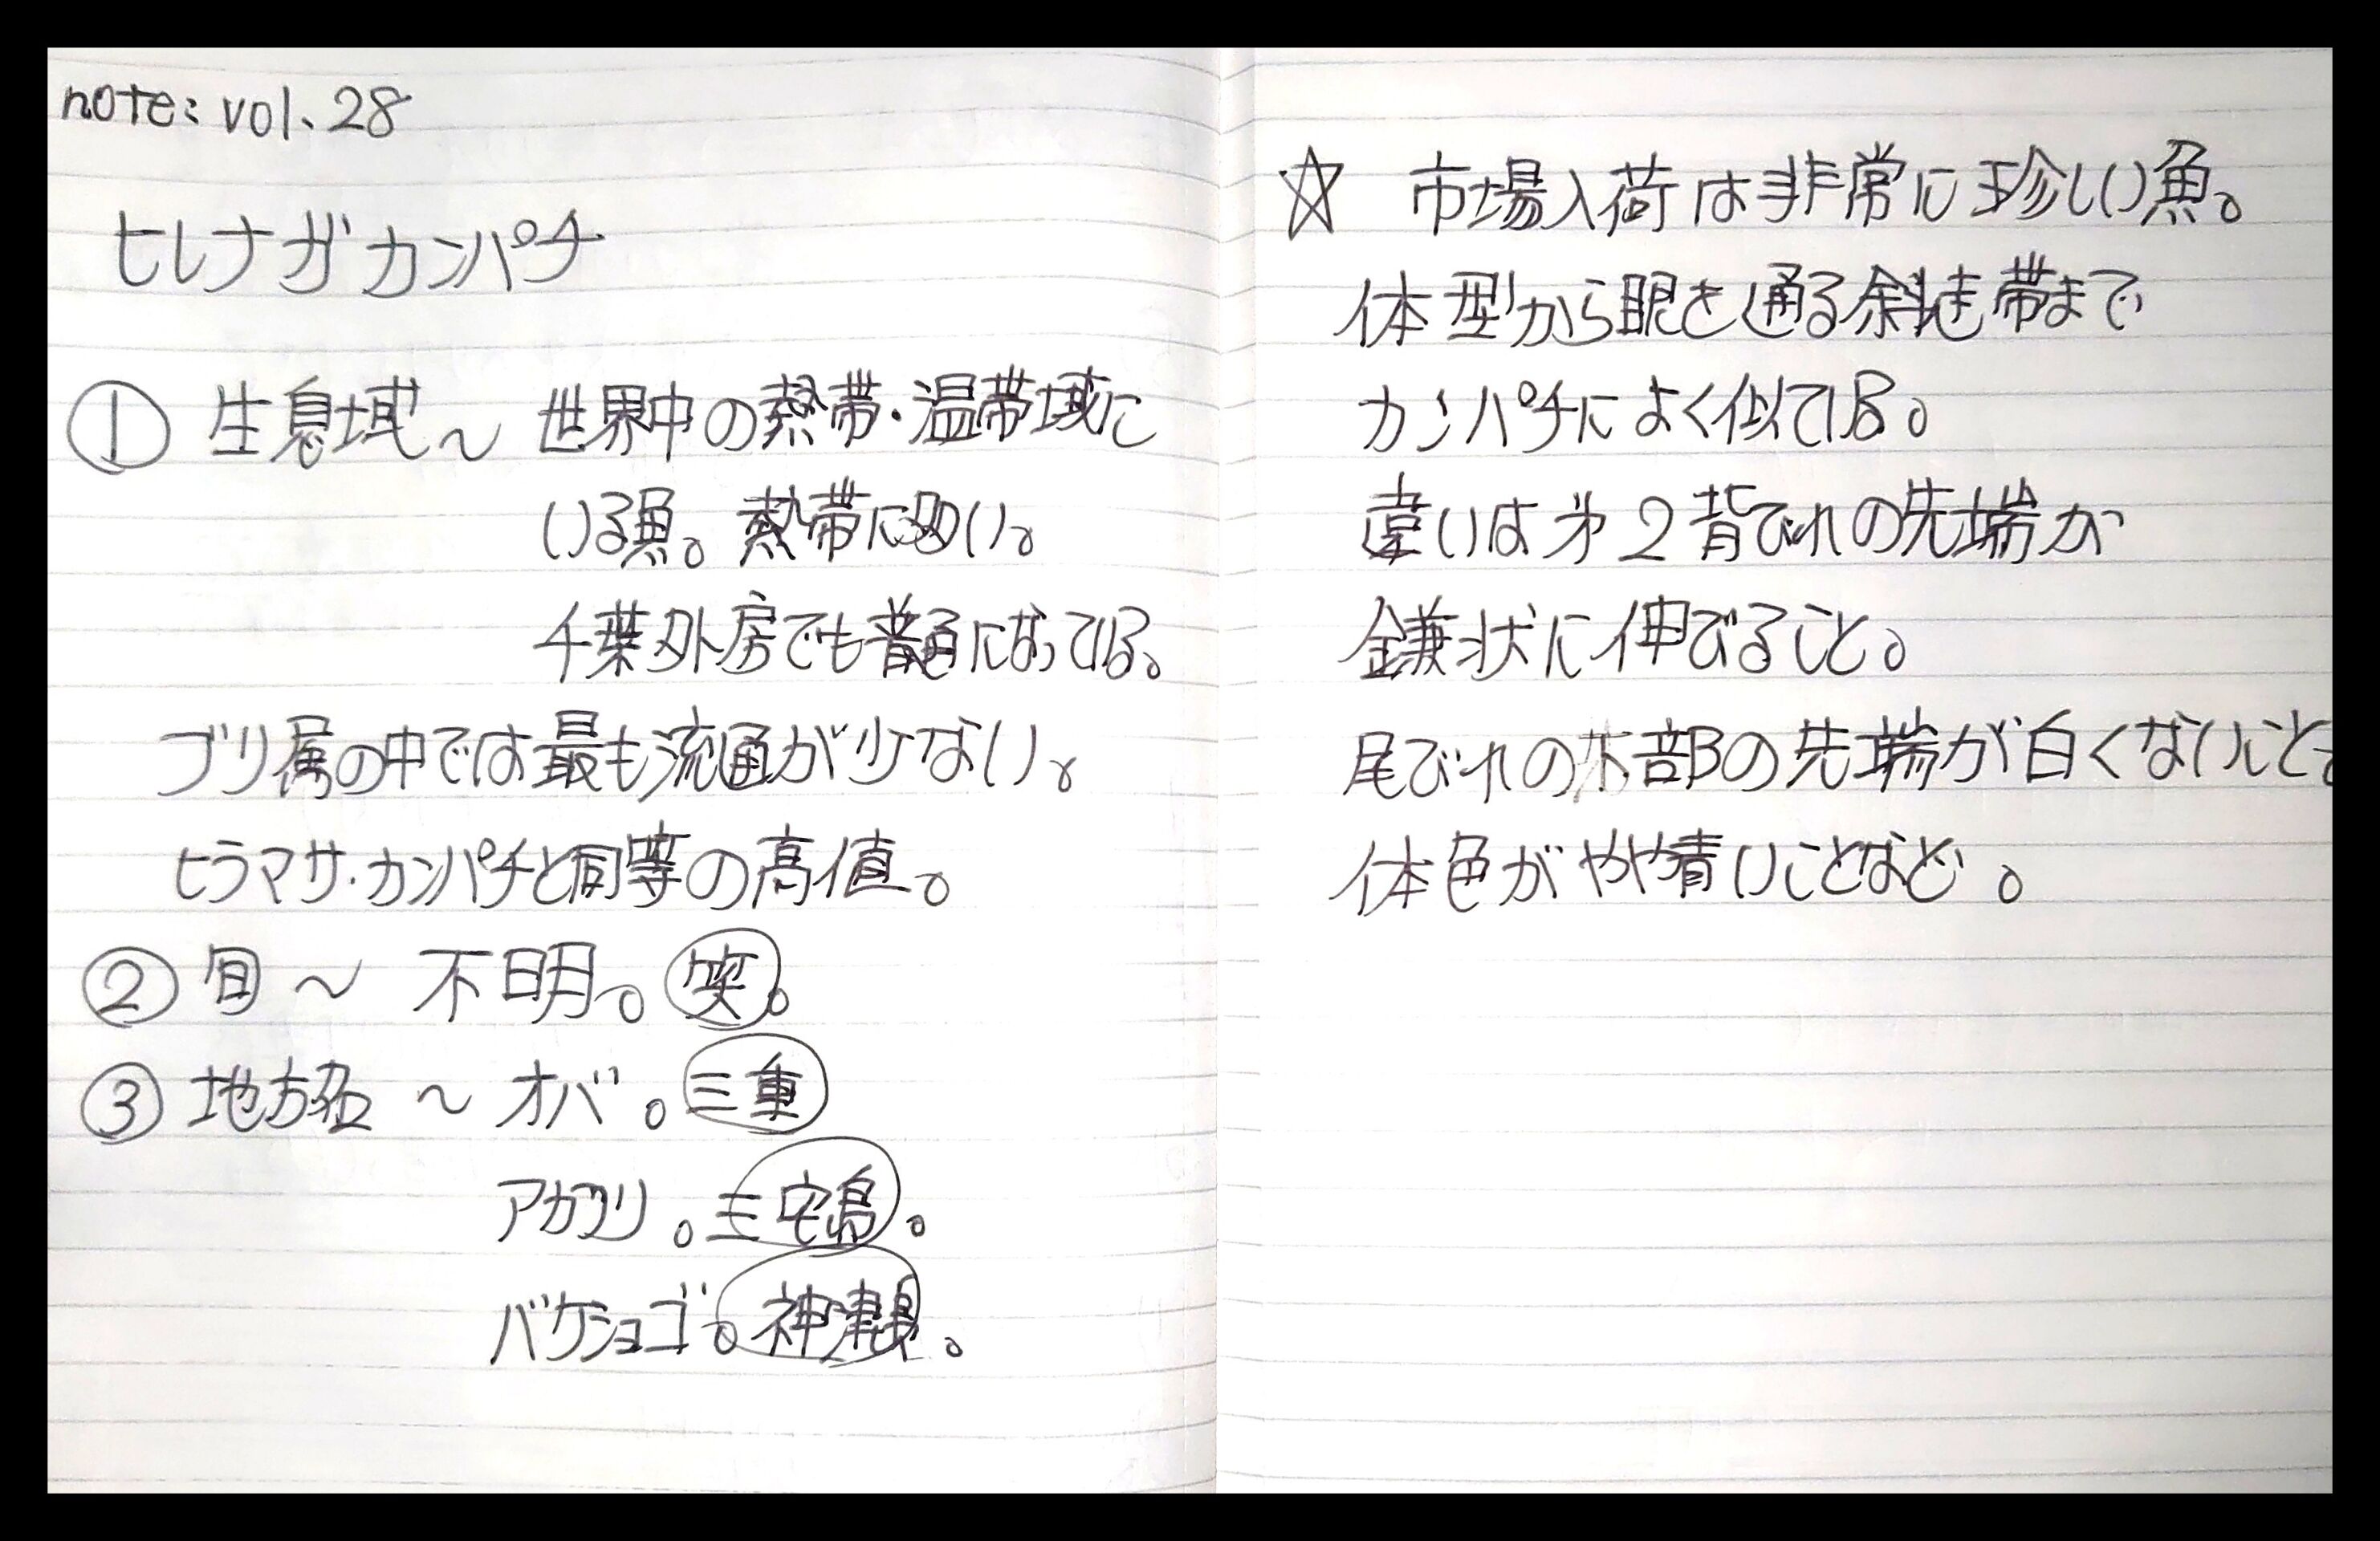 note: vol. 28
ヒレナガカンパチ
① 生息域〜 世界中の熱帯・温帯域に
いる魚。熱帯に多い。
千葉外房でも普通になっている。
ブリ属の中では最も流通が少ない。
ヒラマサ・カンパチと同等の高値。
② 旬 〜 不明。笑。
③ 地方名 〜 オバ。三重
アカブリ。三宅島。
バケショゴ。神津島。
☆ 市場入荷は非常に珍しい魚。
体型から眼を通る斜走帯まで
カンパチによく似ている。
違いは第2背びれの先端が
鎌状に伸びること。
尾びれの下部の先端が白くないこと
体色がやや青いことなど。